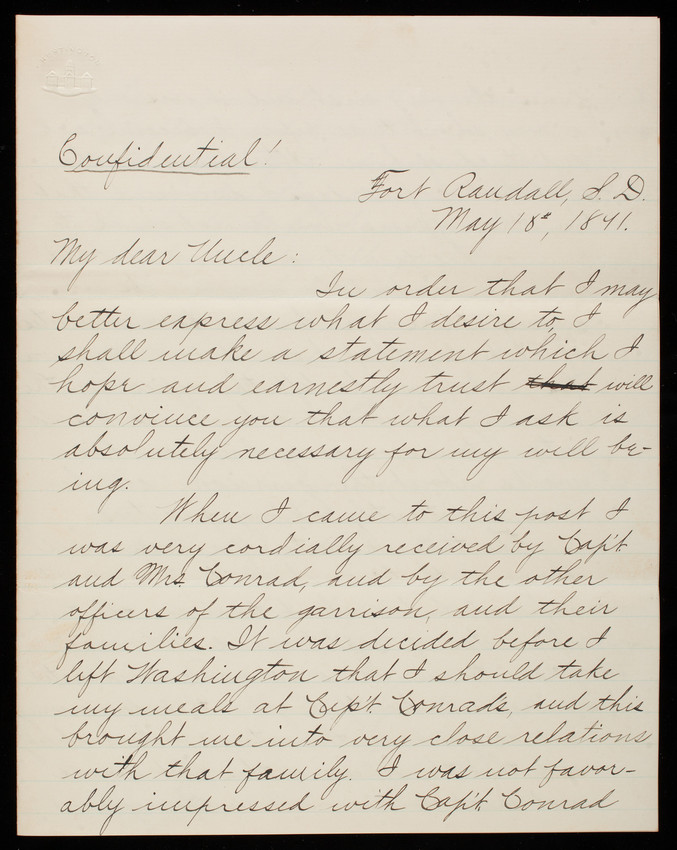 Confidential!
Fort Randall, S. D.
May 18th, 1891.
My dear Uncle:
In order that I may
better express what I desire to, I
shall make a statement which I
hope and earnestly trust that will
convince you that what I ask is
absolutely necessary for my will be-
ing.
When I came to this post I
was very cordially received by Cap't
and Mrs. Conrad, and by the other
officers of the garrison, and their
families. It was decided before I
left Washington that I should take
my meals at Cap't. Conrad's, and this
brought me into very close relations
with that family. I was not favor-
ably impressed with Cap't. Conrad